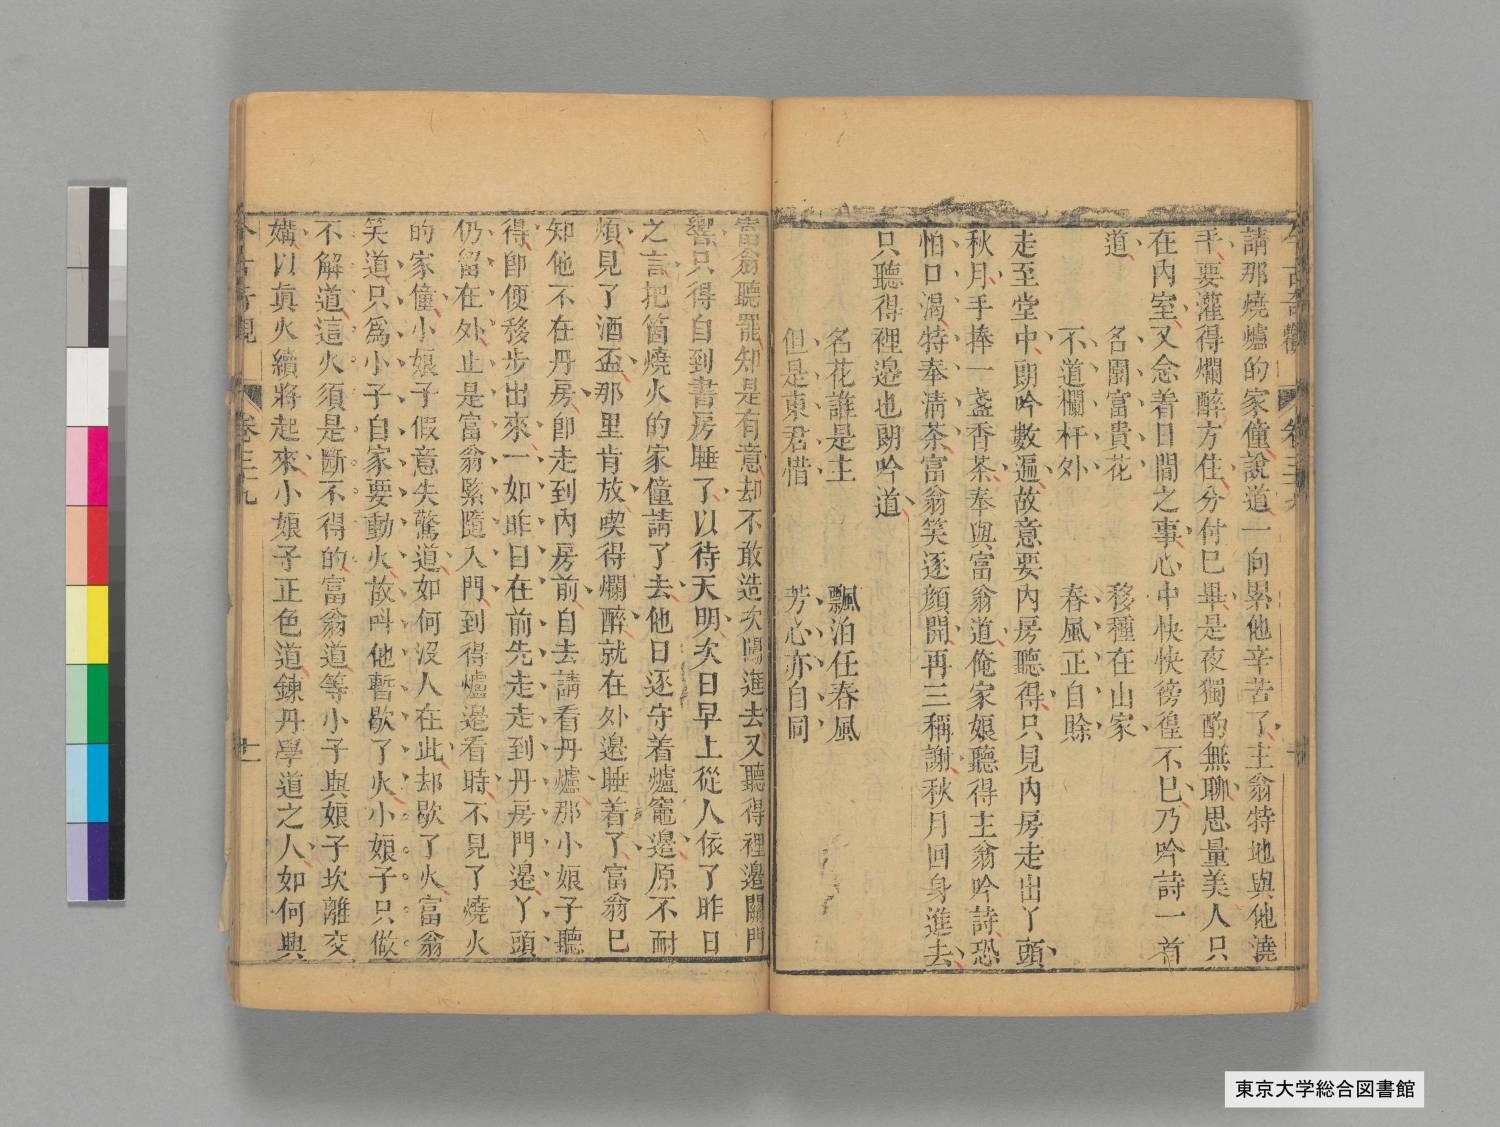 今古奇觀　卷三十九
請那燒爐的家僮說道一向累他辛苦了主翁特地與他澆
手要灌得爛醉方住分付已畢是夜獨酌無聊思量美人只
在內室又念着日間之事心中怏怏徬徨不已乃吟詩一首
道
名園富貴花　移種在山家
不道欄杆外　春風正自賒
走至堂中朗吟數遍故意要內房聽得只見內房走出丫頭
秋月手捧一盞香茶奉與富翁道俺家娘聽得主翁吟詩恐
怕口渴特奉清茶富翁笑逐顏開再三稱謝秋月回身進去
只聽得裡邊也朗吟道
名花誰是主　飄泊任春風
但是東君惜　芳心亦自同
富翁聽罷知是有意却不敢造次闖進去又聽得裡邊關門
響只得自到書房睡了以待天明次日早上從人依了昨日
之言把箇燒火的家僮請了去他日逐守着爐竈邊原不耐
煩見了酒盃那里肯放喫得爛醉就在外邊睡着了富翁已
知他不在丹房卽走到內房前自去請看丹爐那小娘子聽
得卽便移步出來一如昨日在前先走走到丹房門邊丫頭
仍留在外止是富翁緊隨入門到得爐邊看時不見了燒火
的家僮小娘子假意失驚道如何沒人在此却歇了火富翁
笑道只爲小子自家要動火故呌他暫歇了火小娘子只做
不解道這火須是斷不得的富翁道等小子與娘子坎離交
媾以眞火續將起來小娘子正色道鍊丹學道之人如何興
今古奇觀　卷三十九　十一
東京大学総合図書館